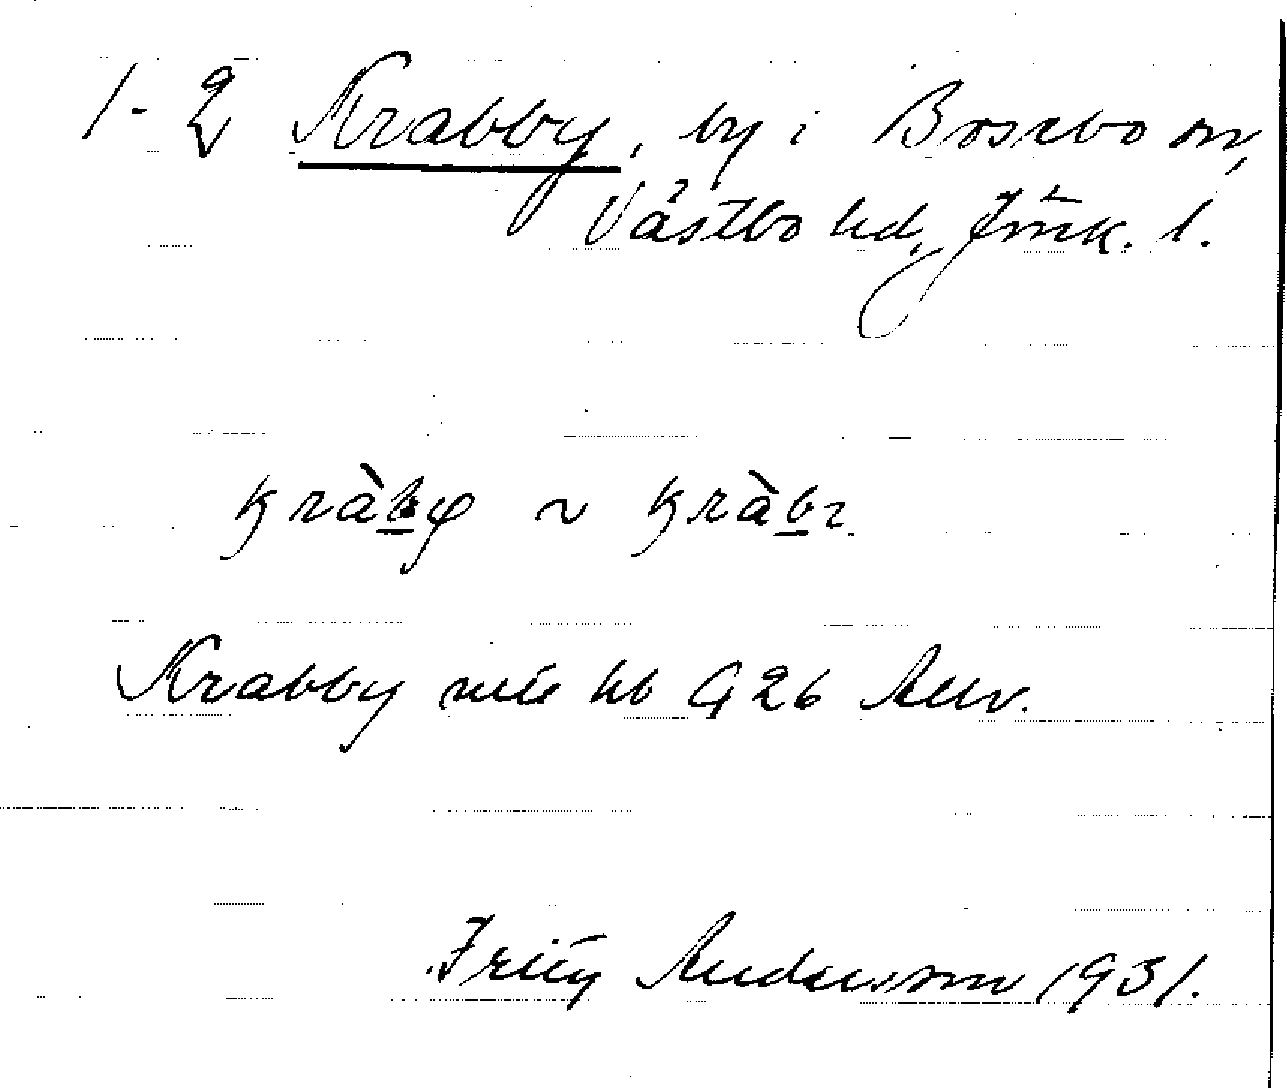 1-2 Krabby, by i Bosebo sn,
Västbo hd, Jönk. l.
kràby ~ kràbı
Krabby hb G 26 Allv.
Fritz Andersson 1931.